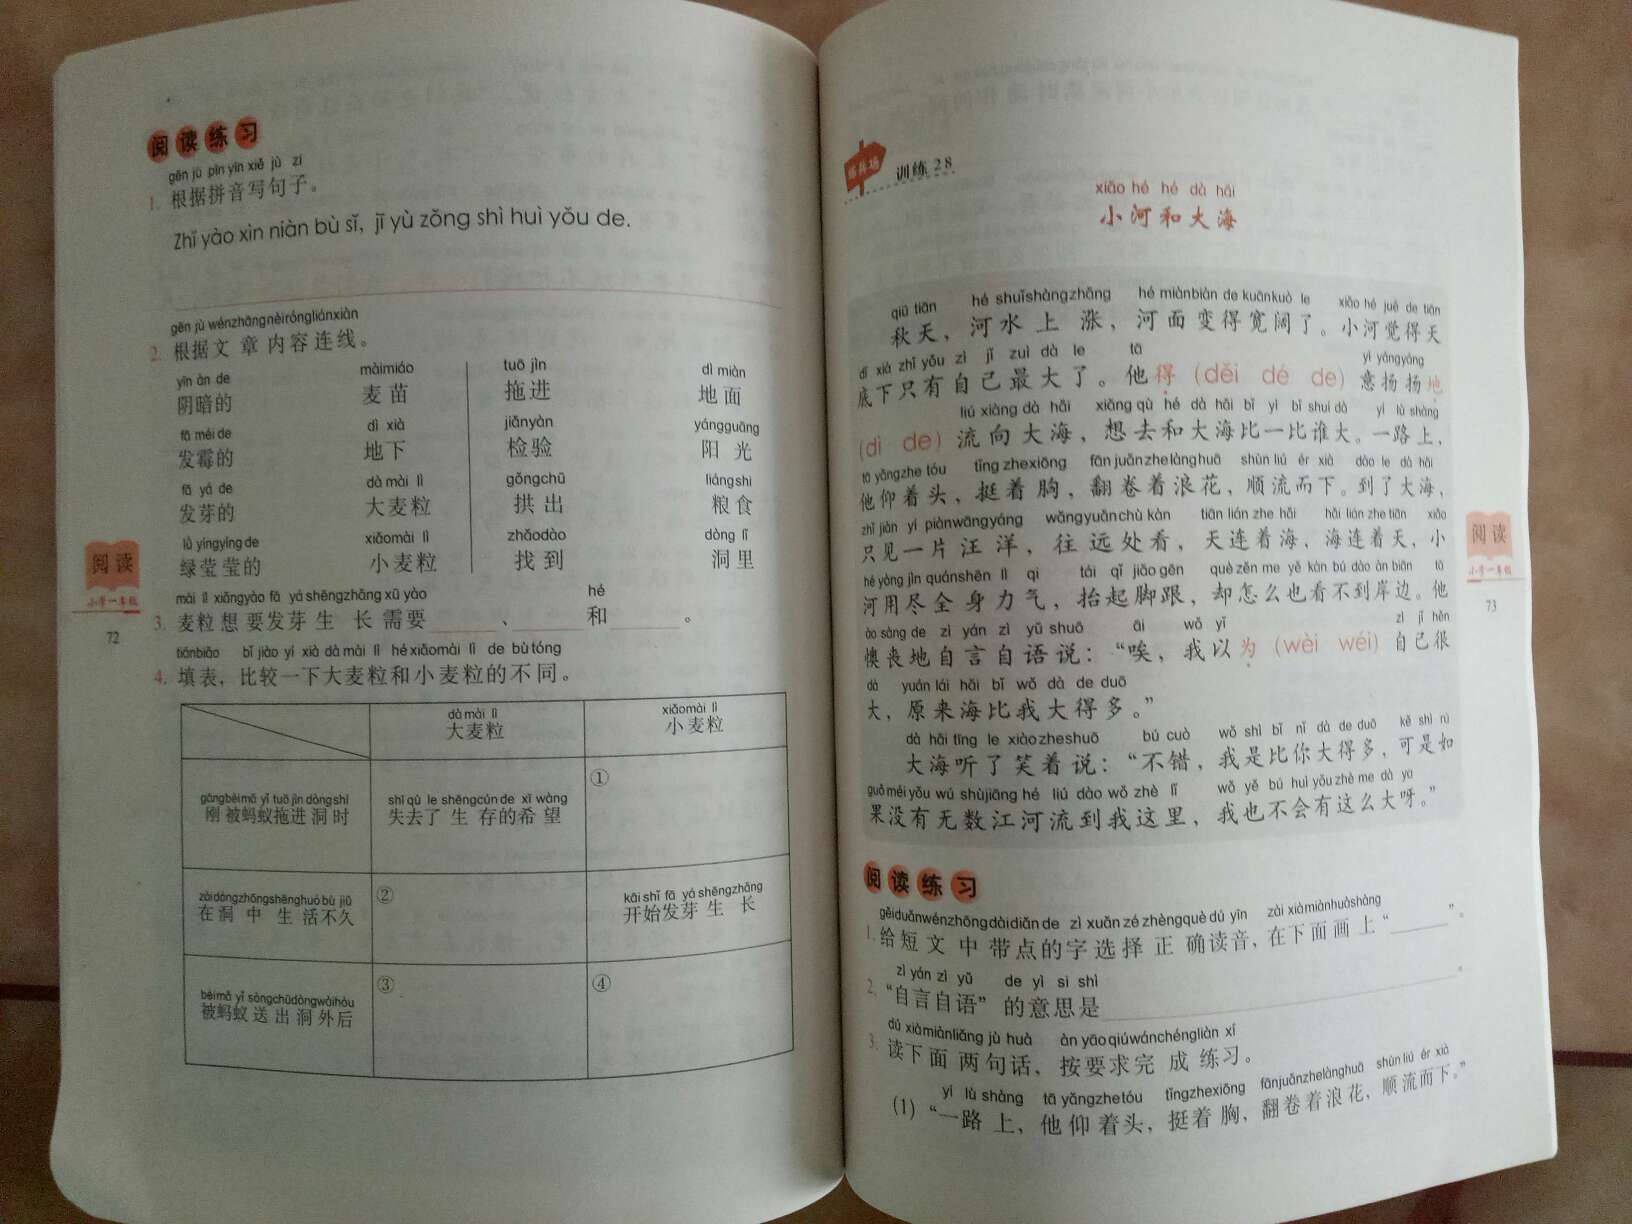 阅读练习
gēn jù pīn yīn xiě jù zi
1. 根据拼音写句子。
Zhǐ yào xìn niàn bù sǐ, jī yù zǒng shì huì yǒu de.
gēn jù wénzhāngnèiróngliánxiàn
2. 根据文章内容连线。
yīn àn de màimiáo tuō jìn dì miàn
阴暗的 麦苗 拖进 地面
fā méi de dì xià jiǎnyàn yángguāng
发霉的 地下 检验 阳光
fā yá de dà mài lì gǒngchū liángshi
发芽的 大麦粒 拱出 粮食
lǜ yíngyíng de xiǎomài lì zhǎodào dòng lǐ
绿莹莹的 小麦粒 找到 洞里
mài lì xiǎngyào fā yá shēngzhǎng xū yào hé
3. 麦粒想要发芽生长需要______、______和______。
tiánbiǎo bǐ jiào yí xià dà mài lì hé xiǎomài lì de bù tóng
4. 填表，比较一下大麦粒和小麦粒的不同。
dà mài lì xiǎomài lì
大麦粒 小麦粒
①
gāngbèimǎ yǐ tuō jìn dòng shí shī qù le shēngcún de xī wàng
刚被蚂蚁拖进洞时 失去了生存的希望
zàidòngzhōngshēnghuó bù jiǔ ② kāi shǐ fā yá shēngzhǎng
在洞中生活不久 开始发芽生长
③ ④
bèimǎ yǐ sòngchūdòngwàihòu
被蚂蚁送出洞外后
阅读
小学一年级
72
练兵场 训练28
xiǎo hé hé dà hǎi
小河和大海
qiū tiān hé shuǐshàngzhǎng hé miànbiàn de kuānkuò le xiǎo hé jué de tiān
秋天，河水上涨，河面变得宽阔了。小河觉得天
dǐ xià zhǐ yǒu zì jǐ zuì dà le tā yì yángyáng
底下只有自己最大了。他得（děi dé de）意扬扬地
liú xiàng dà hǎi xiǎng qù hé dà hǎi bǐ yì bǐ shuí dà yí lù shàng
（dì de）流向大海，想去和大海比一比谁大。一路上，
tā yǎngzhe tóu tǐng zhexiōng fān juǎnzhelànghuā shùn liú ér xià dào le dà hǎi
他仰着头，挺着胸，翻卷着浪花，顺流而下。到了大海，
zhǐ jiàn yí piànwāngyáng wǎngyuǎnchù kàn tiān lián zhe hǎi hǎi lián zhe tiān xiǎo
只见一片汪洋，往远处看，天连着海，海连着天，小
hé yòng jìn quánshēn lì qi tái qǐ jiǎo gēn què zěn me yě kàn bú dào àn biān tā
河用尽全身力气，抬起脚跟，却怎么也看不到岸边。他
ào sàng de zì yán zì yǔ shuō āi wǒ yǐ zì jǐ hěn
懊丧地自言自语说：“唉，我以为（wèi wéi）自己很
dà yuán lái hǎi bǐ wǒ dà de duō
大，原来海比我大得多。”
dà hǎi tīng le xiào zheshuō bú cuò wǒ shì bǐ nǐ dà de duō kě shì rú
大海听了笑着说：“不错，我是比你大得多，可是如
guǒ méi yǒu wú shùjiāng hé liú dào wǒ zhè lǐ wǒ yě bú huì yǒu zhè me dà ya
果没有无数江河流到我这里，我也不会有这么大呀。”
阅读练习
gěiduǎnwénzhōngdàidiǎn de zì xuǎn zé zhèngquè dú yīn zài xiàmiànhuàshàng
1. 给短文中带点的字选择正确读音，在下面画上“______”。
zì yán zì yǔ de yì si shì
2. “自言自语”的意思是______。
dú xiàmiànliǎng jù huà àn yāoqiúwánchéngliàn xí
3. 读下面两句话，按要求完成练习。
yí lù shàng tā yǎngzhetóu tǐngzhexiōng fānjuǎnzhelànghuā shùn liú ér xià
（1）“一路上，他仰着头，挺着胸，翻卷着浪花，顺流而下。”
阅读
小学一年级
73